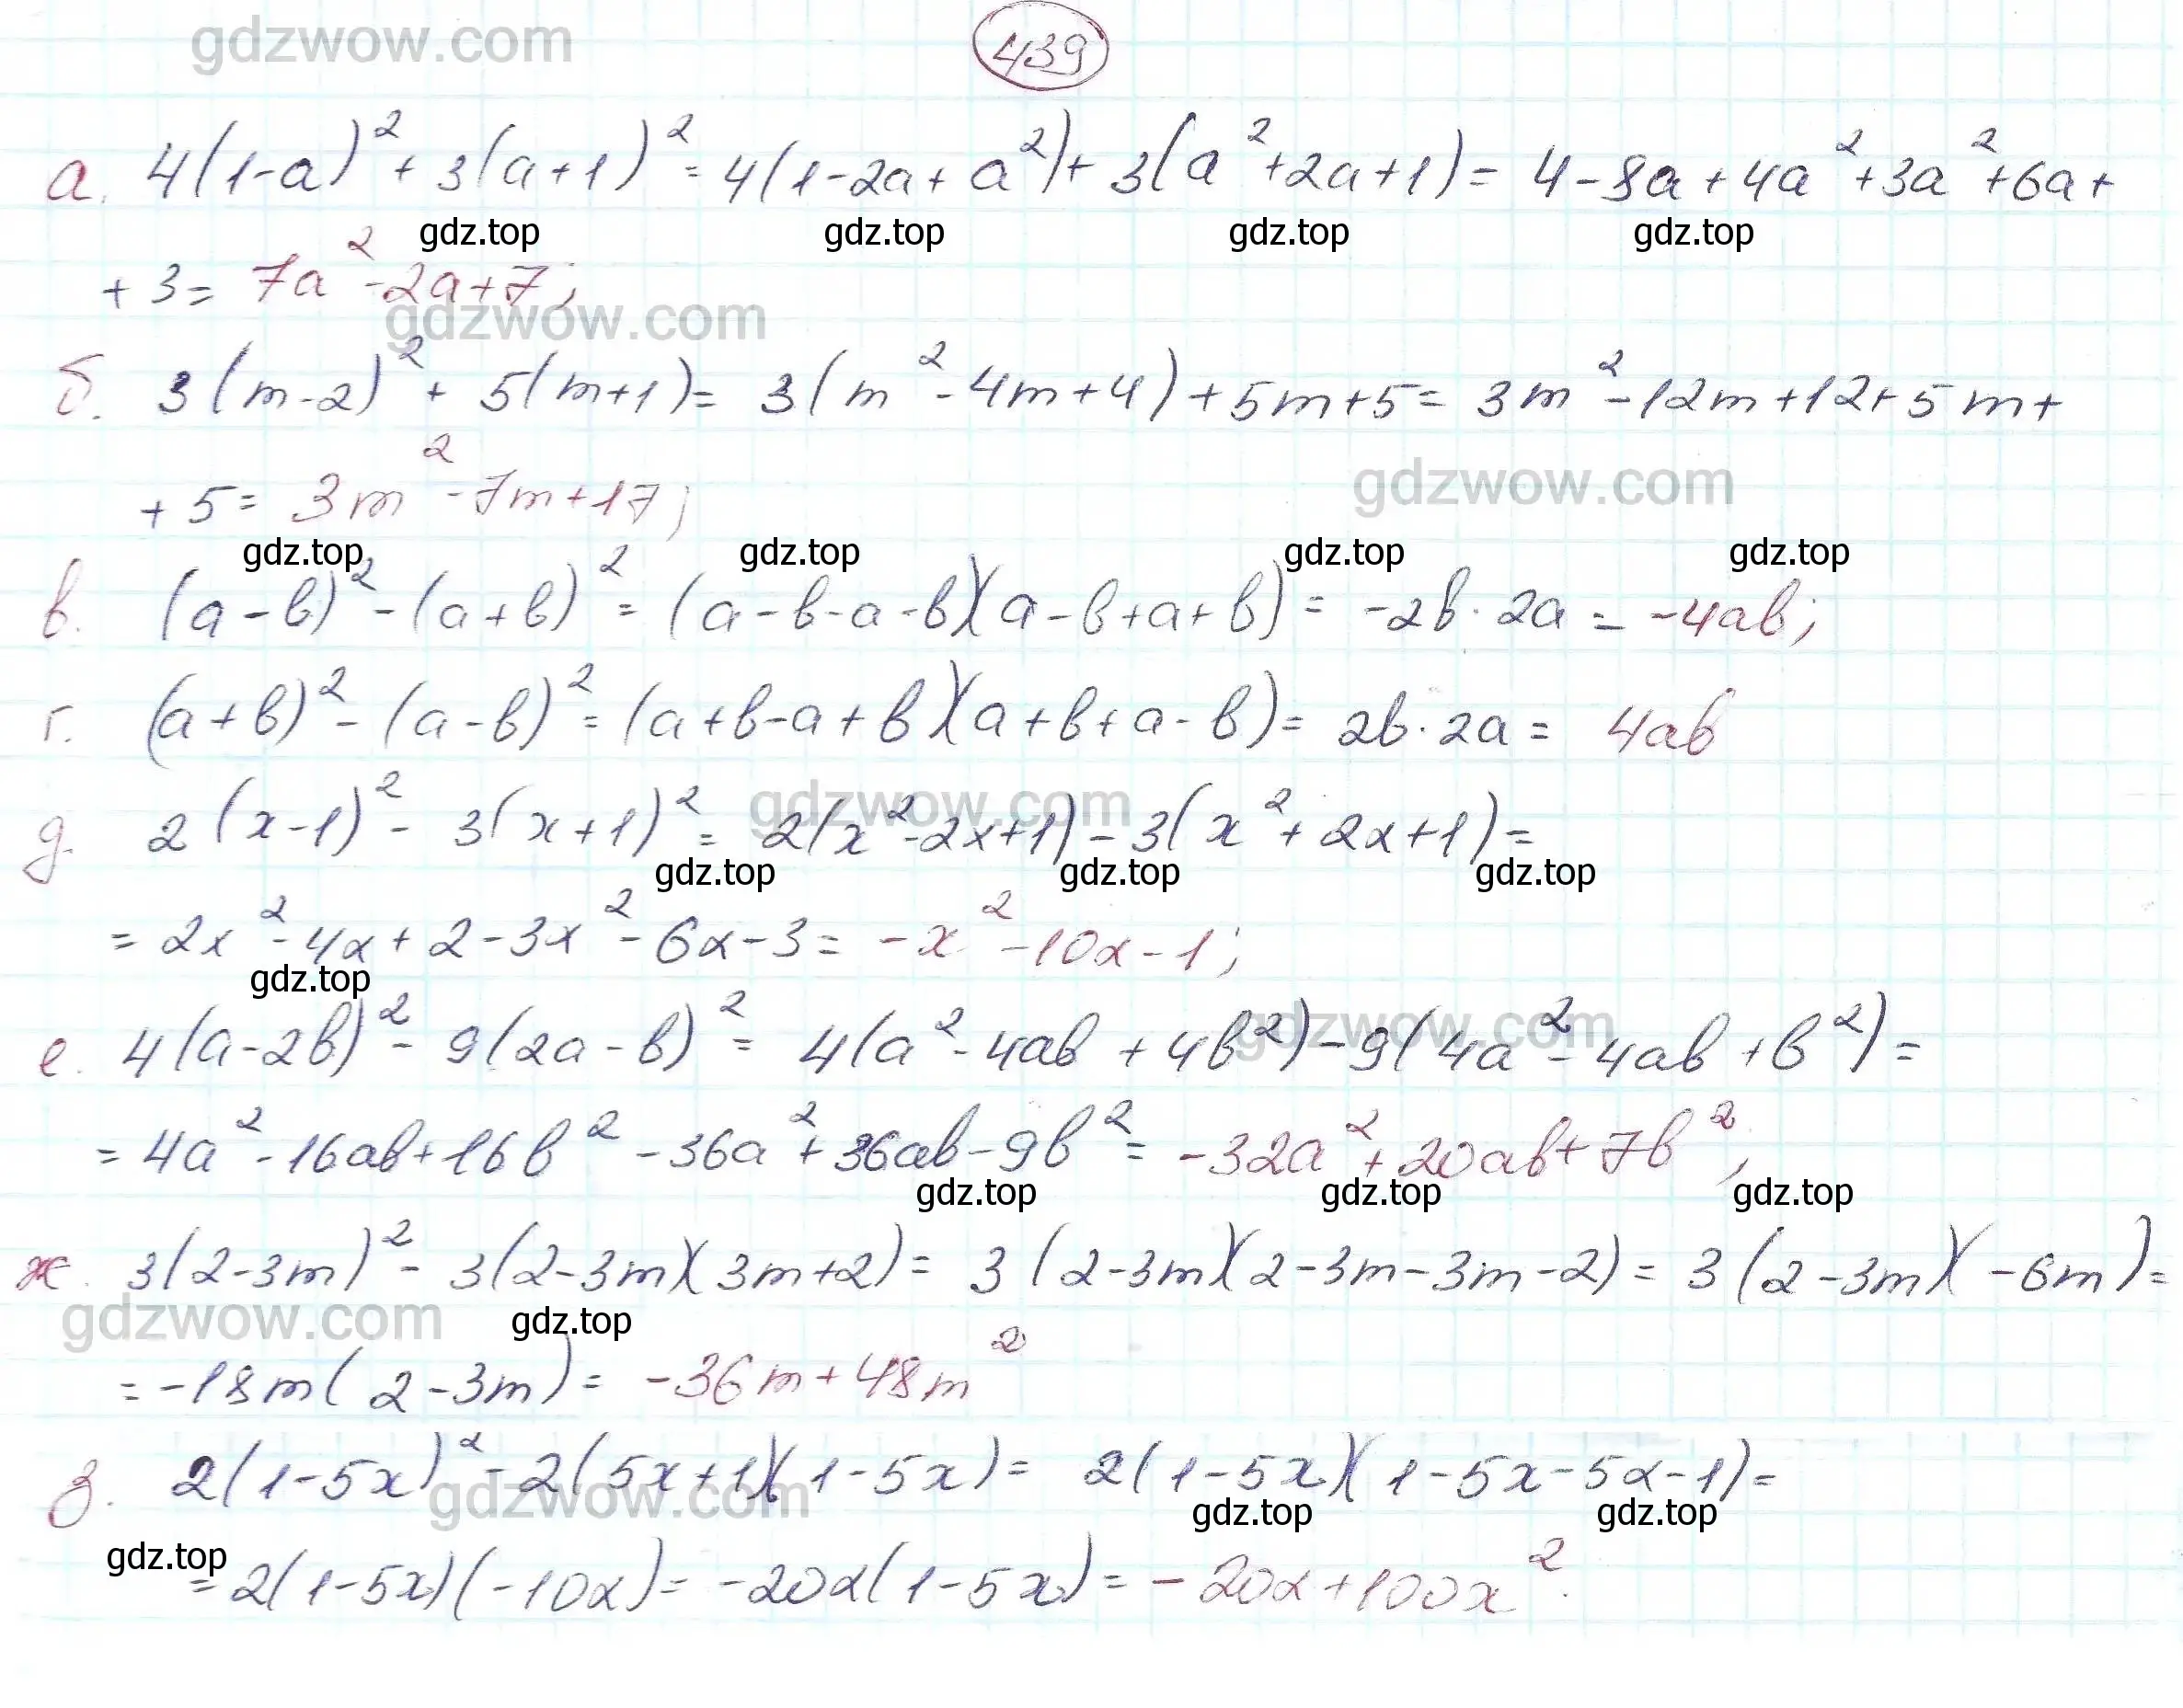 gdzwow.com
439
а. 4(1-a)² + 3(a+1)² = 4(1-2a+a²) + 3(a²+2a+1) = 4-8a+4a²+3a²+6a+
gdz.top gdz.top gdz.top gdz.top
+3 = 7a²-2a+7;
gdzwow.com
б. 3(m-2)² + 5(m+1) = 3(m²-4m+4)+5m+5 = 3m²-12m+12+5m+
gdzwow.com
+5 = 3m²-7m+17;
gdz.top gdz.top gdz.top gdz.top
в. (a-b)²-(a+b)² = (a-b-a-b)(a-b+a+b) = -2b·2a = -4ab;
г. (a+b)²-(a-b)² = (a+b-a+b)(a+b+a-b) = 2b·2a = 4ab
gdzwow.com
д. 2(x-1)² - 3(x+1)² = 2(x²-2x+1)-3(x²+2x+1) =
gdz.top gdz.top gdz.top
= 2x²-4x+2-3x²-6x-3 = -x²-10x-1;
gdz.top
gdzwow.com
е. 4(a-2b)² - 9(2a-b)² = 4(a²-4ab+4b²)-9(4a²-4ab+b²) =
= 4a²-16ab+16b²-36a²+36ab-9b² = -32a²+20ab+7b²;
gdz.top gdz.top gdz.top
ж. 3(2-3m)² - 3(2-3m)(3m+2) = 3(2-3m)(2-3m-3m-2) = 3(2-3m)(-6m) =
gdzwow.com gdz.top
= -18m(2-3m) = -36m+48m²
з. 2(1-5x)²-2(5x+1)(1-5x) = 2(1-5x)(1-5x-5x-1) =
gdzwow.com
gdz.top gdz.top
gdz.top
= 2(1-5x)(-10x) = -20x(1-5x) = -20x+100x².